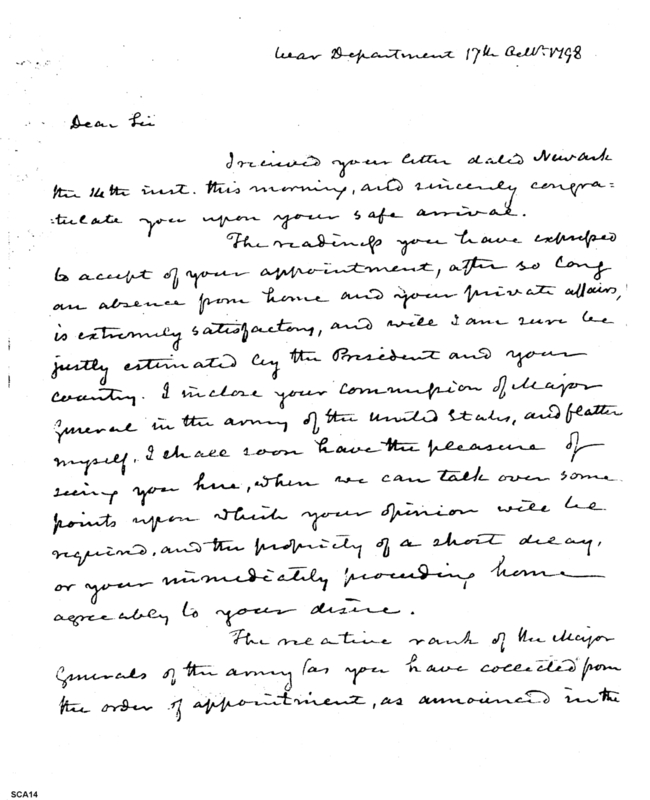 War Department 17th Octbr. 1798
Dear Sir
I received your letter dated Newark
the 14th inst. this morning, and sincerely congra=
=tulate you upon your safe arrival.
The readiness you have expressed
to accept of your appointment, after so long
an absence from home and your private affairs,
is extremely satisfactory, and will I am sure be
justly estimated by the President and your
country. I inclose your commission of Major
General in the army of the United States, and flatter
myself, I shall soon have the pleasure of
seeing you here, when we can talk over some
points upon which your opinion will be
required, and the propriety of a short delay,
or your immediately proceeding home
agreeably to your desire.
The relative rank of the Major
Generals of the army (as you have collected from
the order of appointment, as announced in the
SCA14